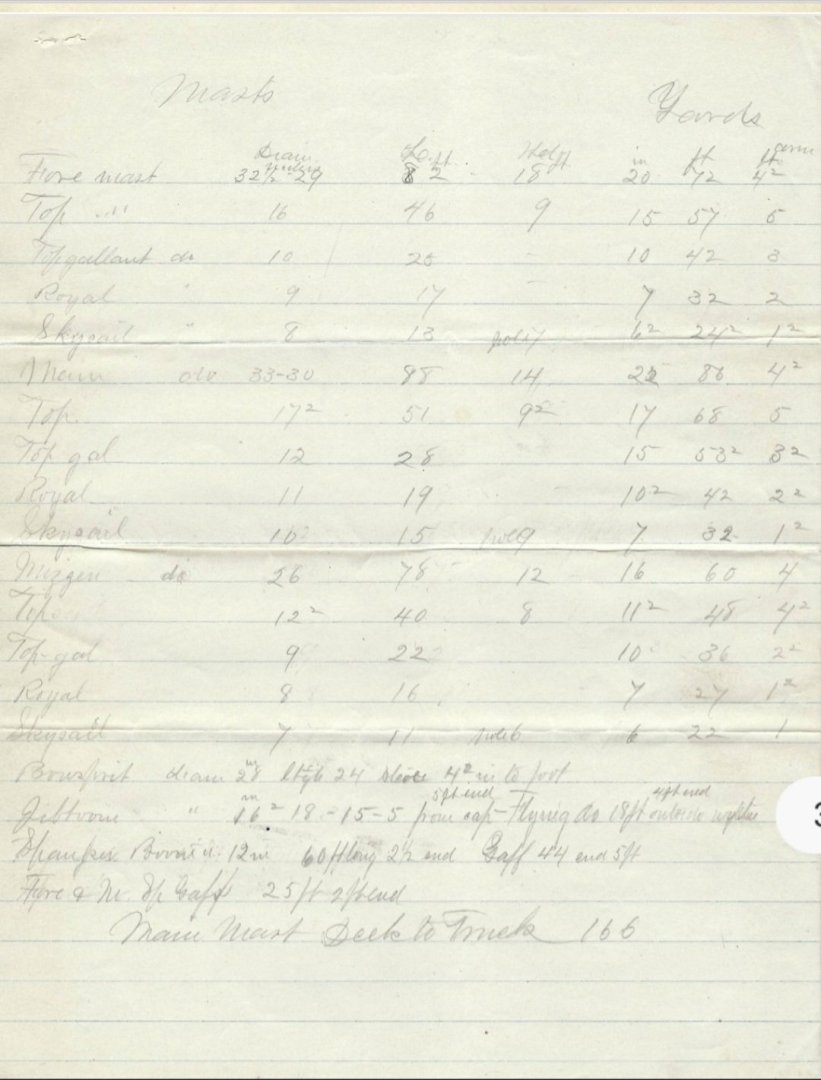 Masts Yards
Diam inches L. ft. Hd ft in ft ft
Fore mast 32½-29 82 18 20 72 4²
Top " 16 46 9 15 57 5
Topgallant do 10 25 - 10 42 3
Royal " 9 17 - 7 32 2
Skysail " 8 13 pole 7 6² 24² 1²
Main do 33-30 88 14 22 80 4²
Top 17² 51 9² 17 68 5
Top gal 12 28 15 53² 3²
Royal 11 19 10² 42 2²
Skysail 10² 15 pole 9 7 32 1²
Mizzen do 26 78 12 16 60 4
Top 12² 40 8 11² 48 4²
Top-gal 9 22 10 36 2²
Royal 8 16 7 27 1²
Skysail 7 11 pole 6 6 22 1
Bowsprit diam 28 in 24 4² in to foot
Jibboom " 16² in 18-15-5 from cap 5 ft end - Flying do 18 ft outside 4 ft end
Spanker Boom 12 in 60 ft long 2½ end Gaff 44 end 5 ft
Fore & M. Sp Gaffs 25 ft 2 ft end
Main Mast Deck to Truck 166